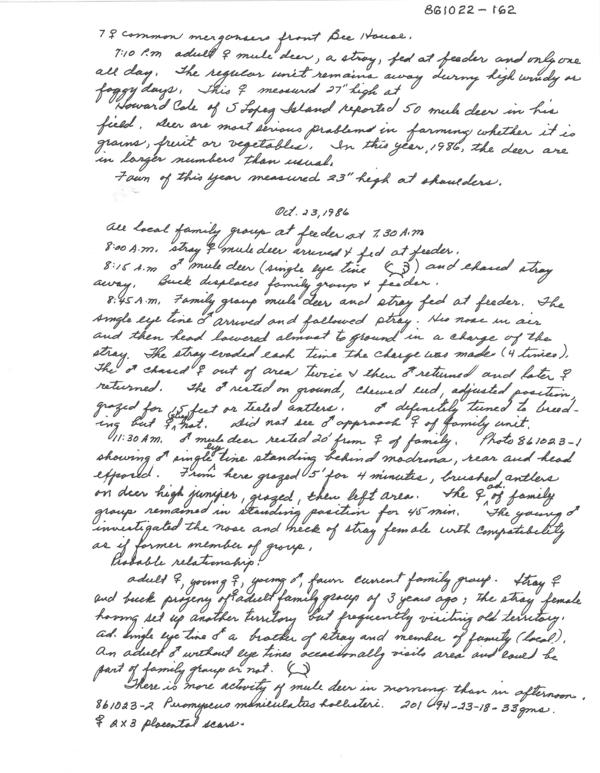 861022-162
7 ♀ common mergansers front Bee House.
7:10 P.m adult ♀ mule deer, a stray, fed at feeder and only one
all day. The regular unit remains away during high windy or
foggy days. This ♀ measured 27" high at
Howard Cole of S Lopez Island reported 50 mule deer in his
field. Deer are most serious problems in farming whether it is
grains, fruit or vegetables. In this year, 1986, the deer are
in larger numbers than usual.
Fawn of this year measured 23" high at shoulders.
Oct. 23, 1986
All local family group at feeder at 7.30 A.m
8:00 A.m. stray ♀ mule deer arrived & fed at feeder.
8:15 A.m ♂ mule deer (single eye tine ) and chased stray
away. Buck displaces family group & feeder.
8:45 A.m. Family group mule deer and stray fed at feeder. The
single eye tine ♂ arrived and followed stray. His nose in air
and then head lowered almost to ground in a charge of the
stray. The stray evaded each time the charge was made (4 times).
The ♂ chased ♀ out of area twice & then ♂ returned and later ♀
returned. The ♂ rested on ground, chewed cud, adjusted position,
grazed for 5 feet or tested antlers. ♂ definitely tuned to breed-
ing but ♀ not. Did not see ♂ approach ♀ of family unit.
11:30 AM. ♂ mule deer rested 20' from ♀ of family. Photo 861023-1
showing ♂ single eye tine standing behind madrona, rear and head
exposed. From here grazed 5' for 4 minutes, brushed antlers
on deer high juniper, grazed, then left area. The ad. ♀ of family
group remained in standing position for 45 min. The young ♂
investigated the nose and neck of stray female with compatibility
as if former member of group.
Probable relationship:
adult ♀, young ♀, young ♂, fawn current family group. Stray ♀
and buck progeny of adult family group of 3 years ago; the stray female
having set up another territory but frequently visiting old territory.
ad. single eye tine ♂ a brother of stray and member of family (local).
An adult ♂ without eye tines occasionally visits area and could be
part of family group or not.
There is more activity of mule deer in morning than in afternoon.
861023-2 Peromyscus maniculatus hollisteri. 201-94-23-18-33gms.
♀ 2x3 placental scars.